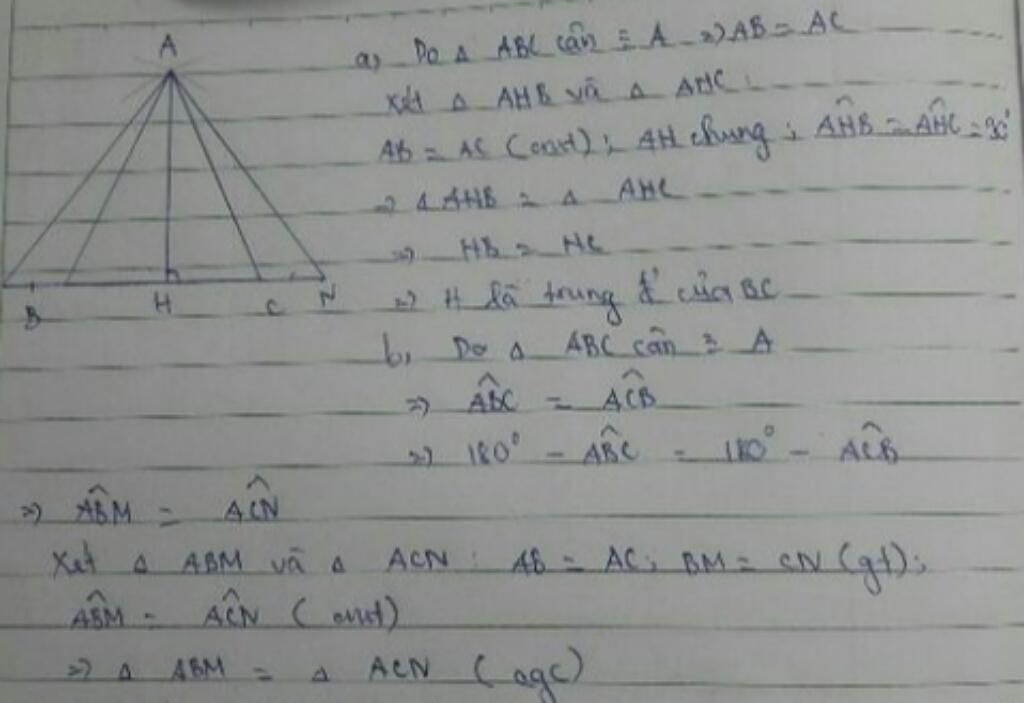 A
B H C N
a) Do Δ ABC cân ≡ A => AB = AC
Xét Δ AHB và Δ AHC :
AB = AC (cmt) ; AH chung ; AHB = AHC = 90°
=> Δ AHB = Δ AHC
=> HB = HC
=> H là trung đ' của BC
b, Do Δ ABC cân ≡ A
=> ABC = ACB
=> 180° - ABC = 180° - ACB
=> ABM = ACN
Xét Δ ABM và Δ ACN : AB = AC ; BM = CN (gt) ;
ABM = ACN ( cmt)
=> Δ ABM = Δ ACN ( cgc)